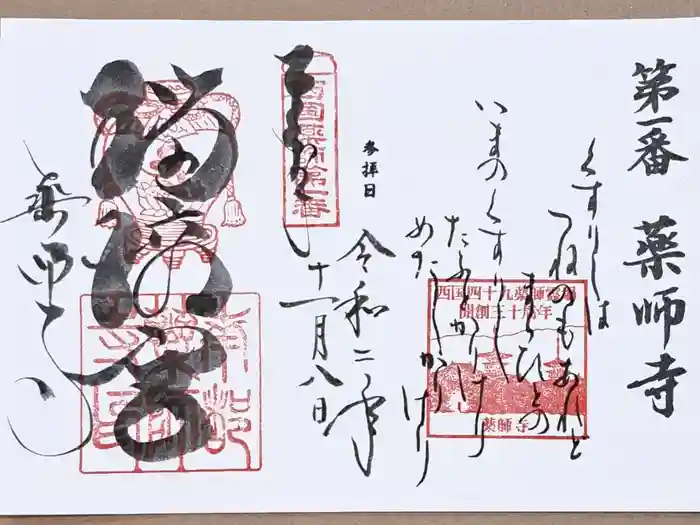 第一番 薬師寺
くすりしは
つねのもあれど
まらひとの
いまのくすりし
たふとかりけり
めだしかりけり
西国四十九薬師霊場
開創三十周年
薬師寺
参拝日
令和二年
十一月八日
西国薬師第一番
薬師寺